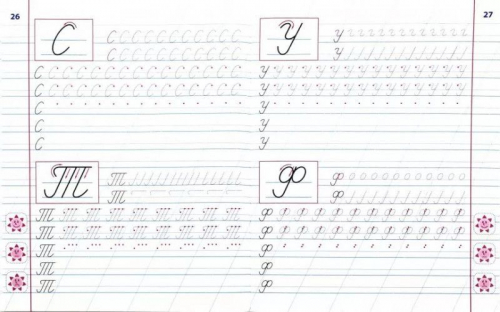 26
27
С
С С С С С С С С С С С
С С С С С С С С С С С
С С С С С С С С С С С С С С
С С С С С С С С С С С С С С
С
С
С
У
У
У
У У У У У У У У У У У У У У
У У У У У У У У У У У У У У
У
У
У
Т
Т
Т
Т Т Т Т Т Т Т Т Т
Т Т Т Т Т Т Т Т Т
Т
Т
Т
Ф
Ф
Ф
Ф Ф Ф Ф Ф Ф Ф Ф Ф Ф Ф
Ф Ф Ф Ф Ф Ф Ф Ф Ф Ф Ф
Ф
Ф
Ф